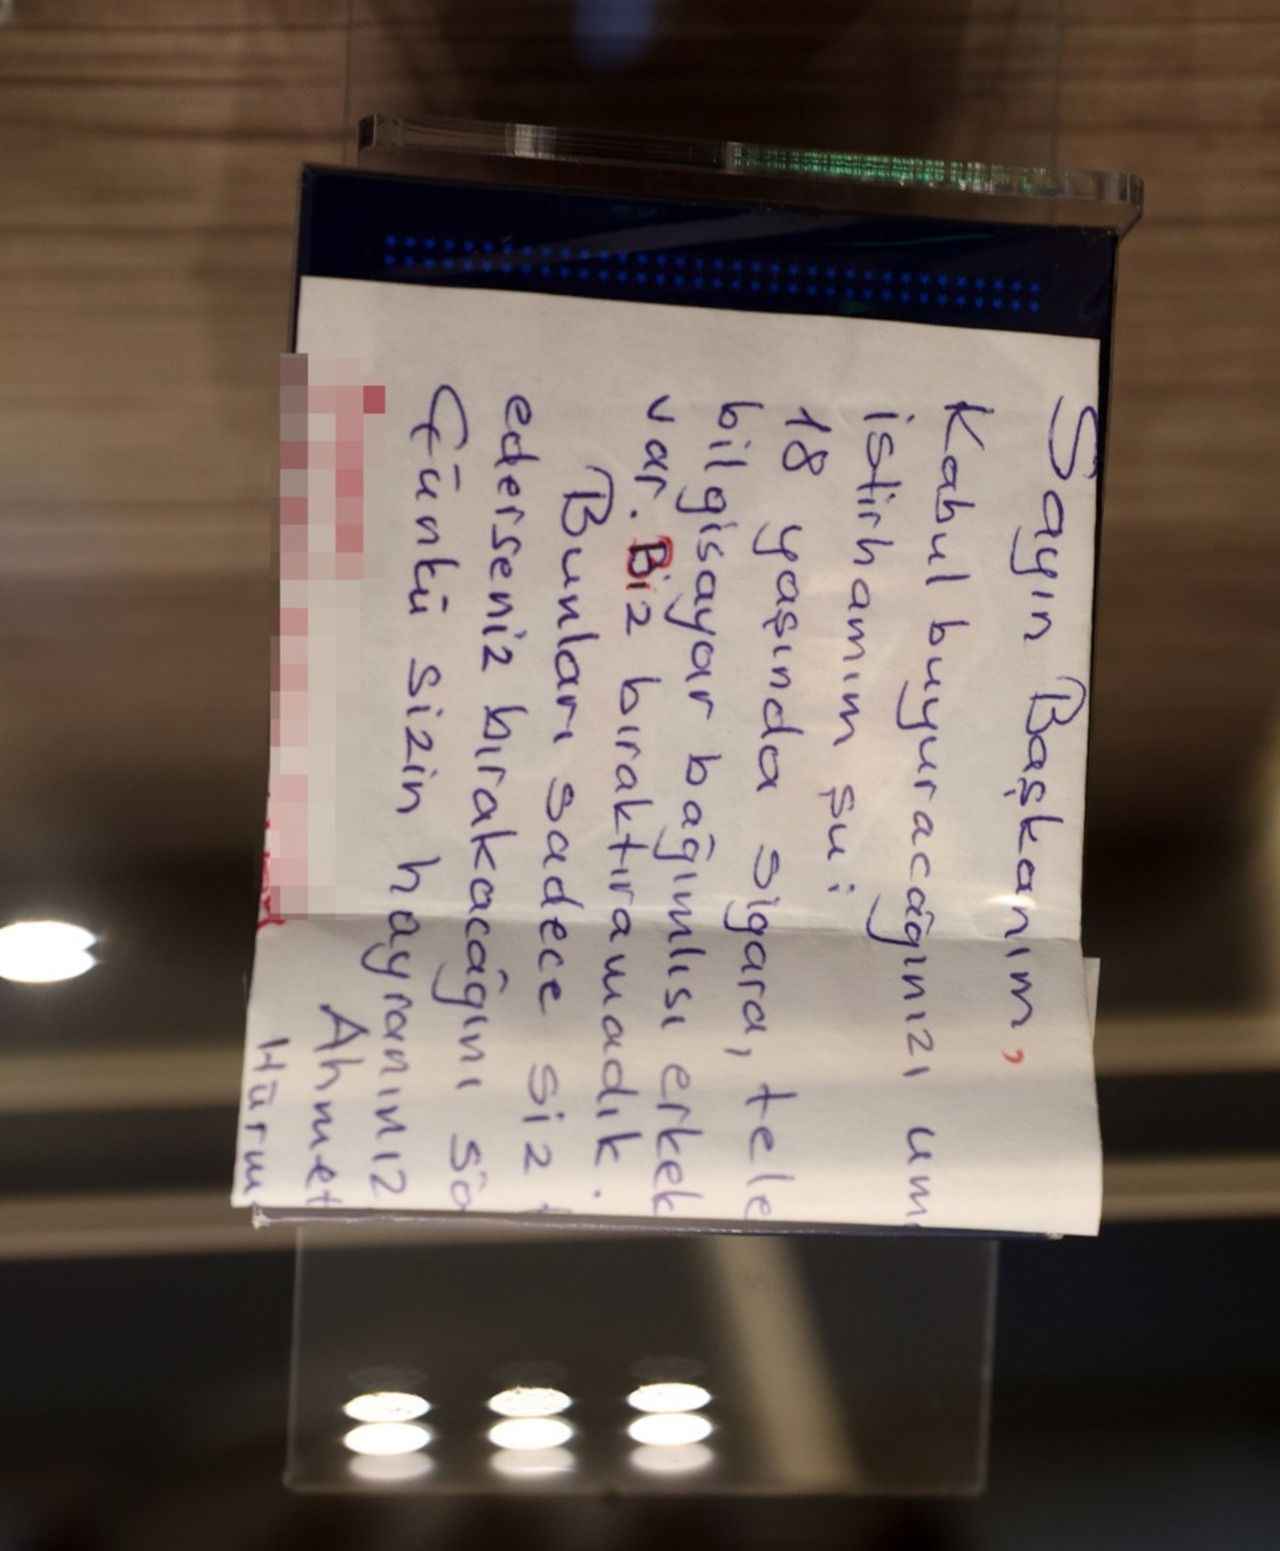 Sayın Başkanım,
Kabul buyuracağınızı um
istirhamım şu:
18 yaşında sigara, tele
bilgisayar bağımlısı erkek
var. Biz bıraktıramadık.
Bunları sadece siz
ederseniz bırakacağını sö
Çünkü sizin hayranınız
Ahmet
Hürm